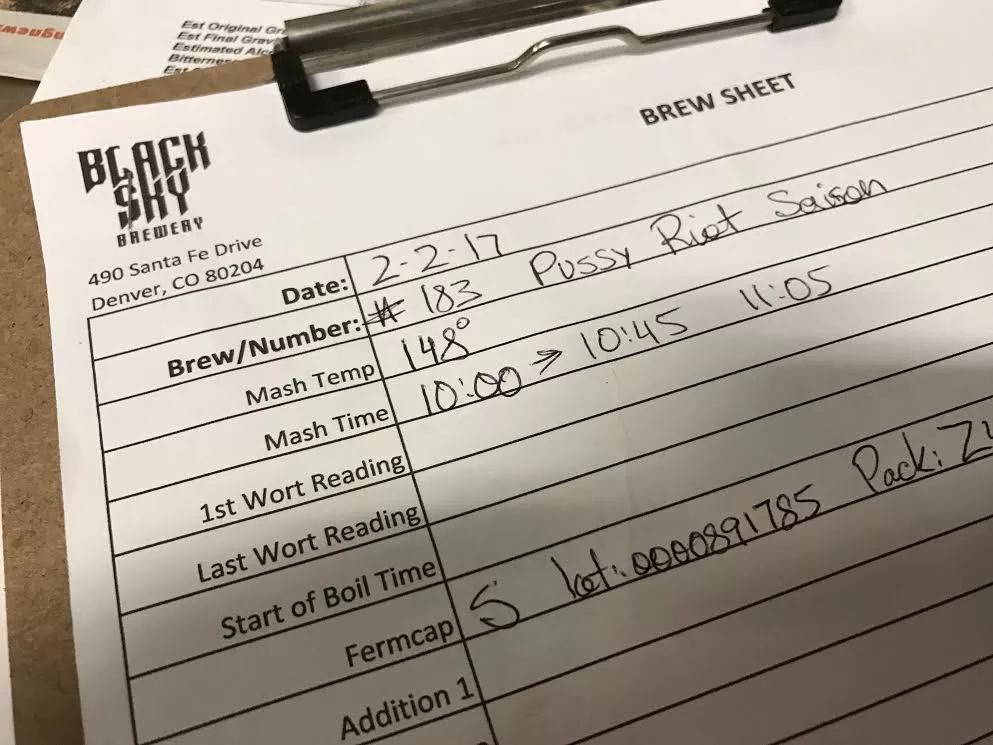 Est Original Gr
Est Final Grav
Estimated Alc
Bitterness
Est
BREW SHEET
BLACK
SKY
BREWERY
490 Santa Fe Drive
Denver, CO 80204
Date: 2-2-17
Brew/Number: # 183 Pussy Riot Saison
Mash Temp 148°
Mash Time 10:00 > 10:45 11:05
1st Wort Reading
Last Wort Reading
Start of Boil Time
Fermcap 5 lot: 0000891785 Pack:
Addition 1